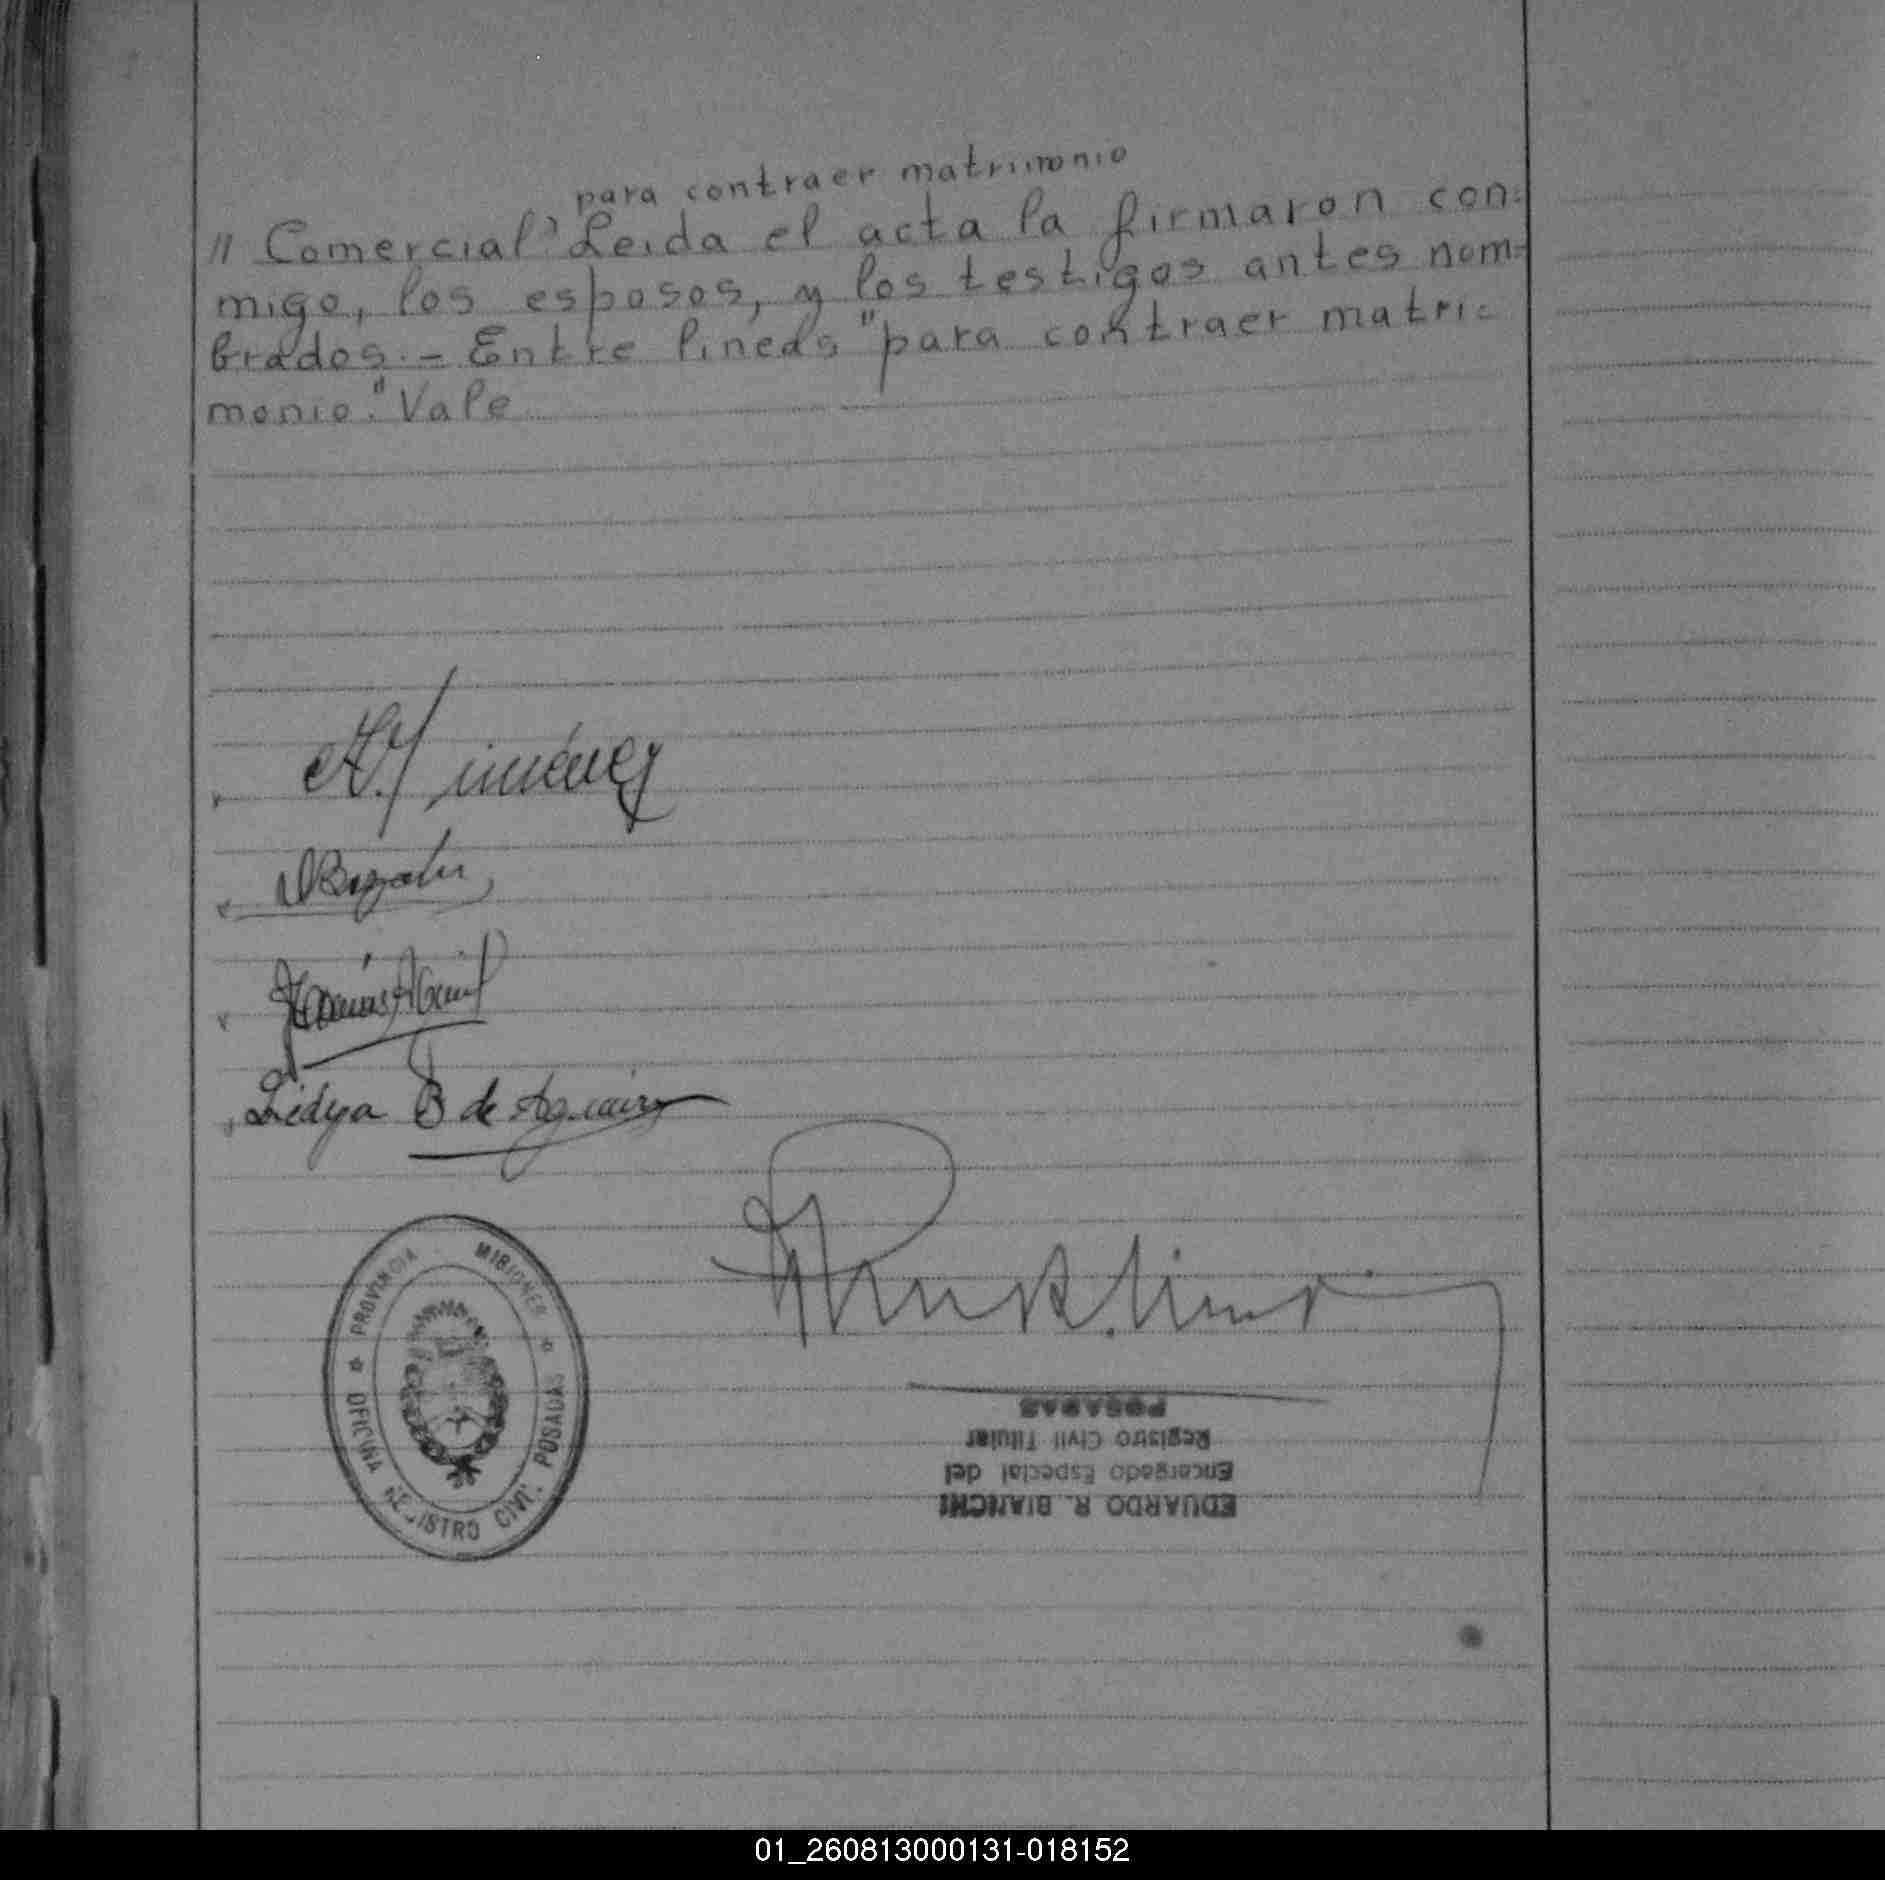 para contraer matrimonio
" Comercial" Leida el acta la firmaron con=
migo, los esposos, y los testigos antes nom=
brados.- Entre lineas "para contraer matri=
monio." Vale
A. Jiménez
Lidya B de Aguirre
PROVINCIA MISIONES
OFICINA REGISTRO CIVIL POSADAS
EDUARDO R. BIANCHI
Encargado Especial del
Registro Civil Titular
POSADAS
01_260813000131-018152